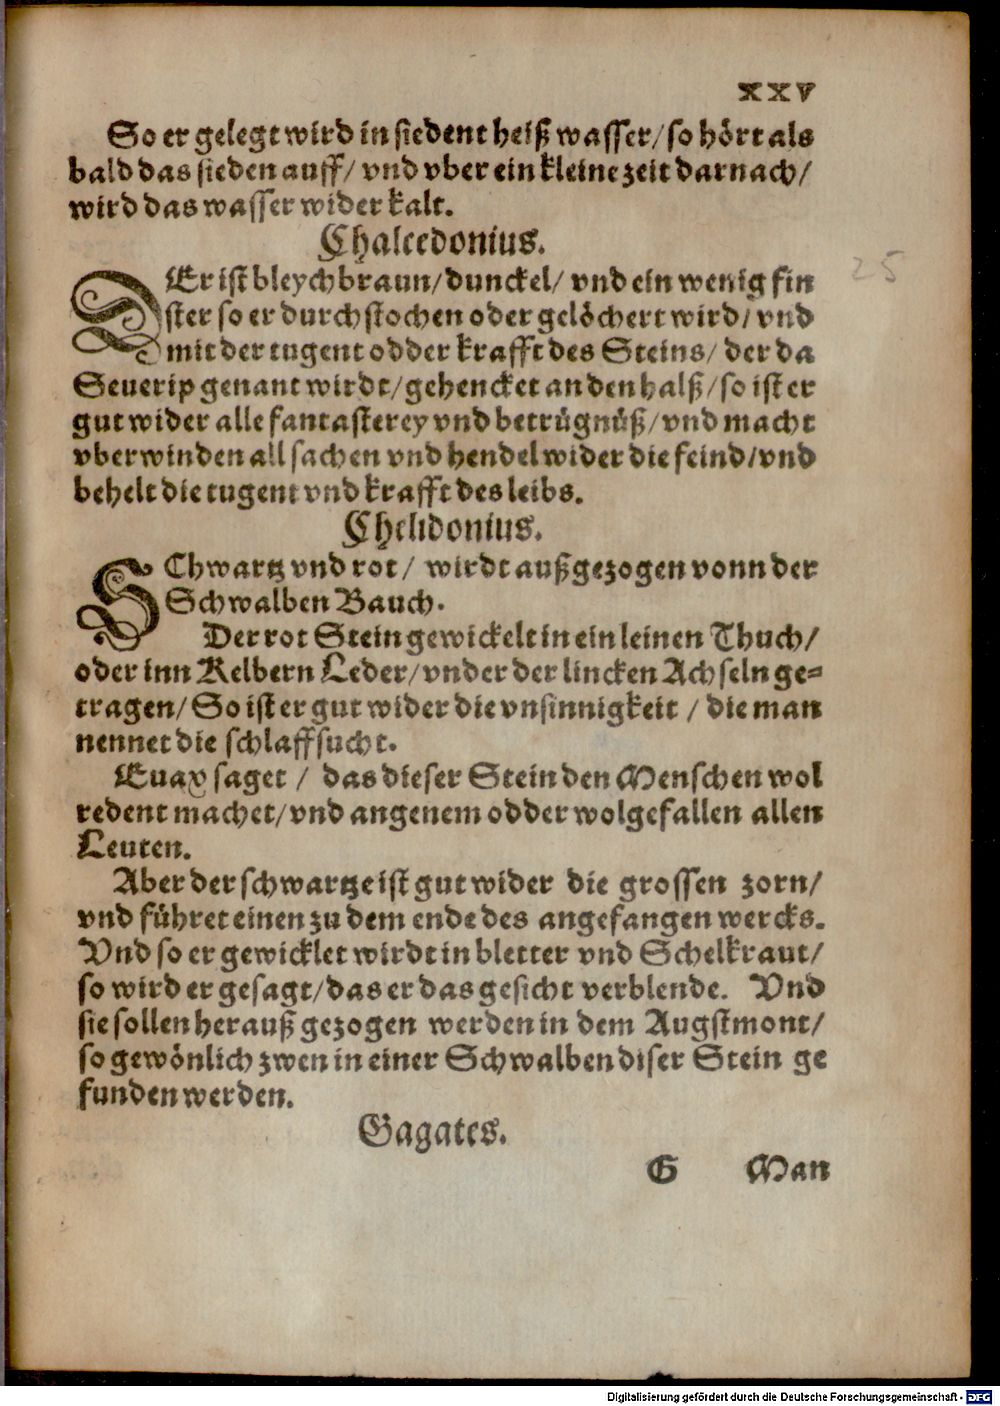 XXV
So er gelegt wird in siedent heiß wasser/ so hört als
bald das sieden auff/ vnd vber ein kleine zeit darnach/
wird das wasser wider kalt.
Chalcedonius.
25
DEr ist bleychbraun/ dunckel/ vnd ein wenig fin
ster so er durchstochen oder gelöchert wird/ vnd
mit der tugent odder krafft des Steins/ der da
Seuerip genant wirdt/ gehencket an den halß/ so ist er
gut wider alle fantasterey vnd betrügnüß/ vnd macht
vberwinden all sachen vnd hendel wider die feind/ vnd
behelt die tugent vnd krafft des leibs.
Chelidonius.
SChwartz vnd rot/ wirdt außgezogen vonn der
Schwalben Bauch.
Der rot Stein gewickelt in ein leinen Thuch/
oder inn Kelbern Leder/ vnder der lincken Achseln ge=
tragen/ So ist er gut wider die vnsinnigkeit/ die man
nennet die schlaffsucht.
Euax saget/ das dieser Stein den Menschen wol
redent machet/ vnd angenem odder wolgefallen allen
Leuten.
Aber der schwartze ist gut wider die grossen zorn/
vnd führet einen zu dem ende des angefangen wercks.
Vnd so er gewicklet wirdt in bletter vnd Schelkraut/
so wird er gesagt/ das er das gesicht verblende. Vnd
sie sollen herauß gezogen werden in dem Augstmont/
so gewönlich zwen in einer Schwalben diser Stein ge
funden werden.
Gagates.
G Man
Digitalisierung gefördert durch die Deutsche Forschungsgemeinschaft - DFG